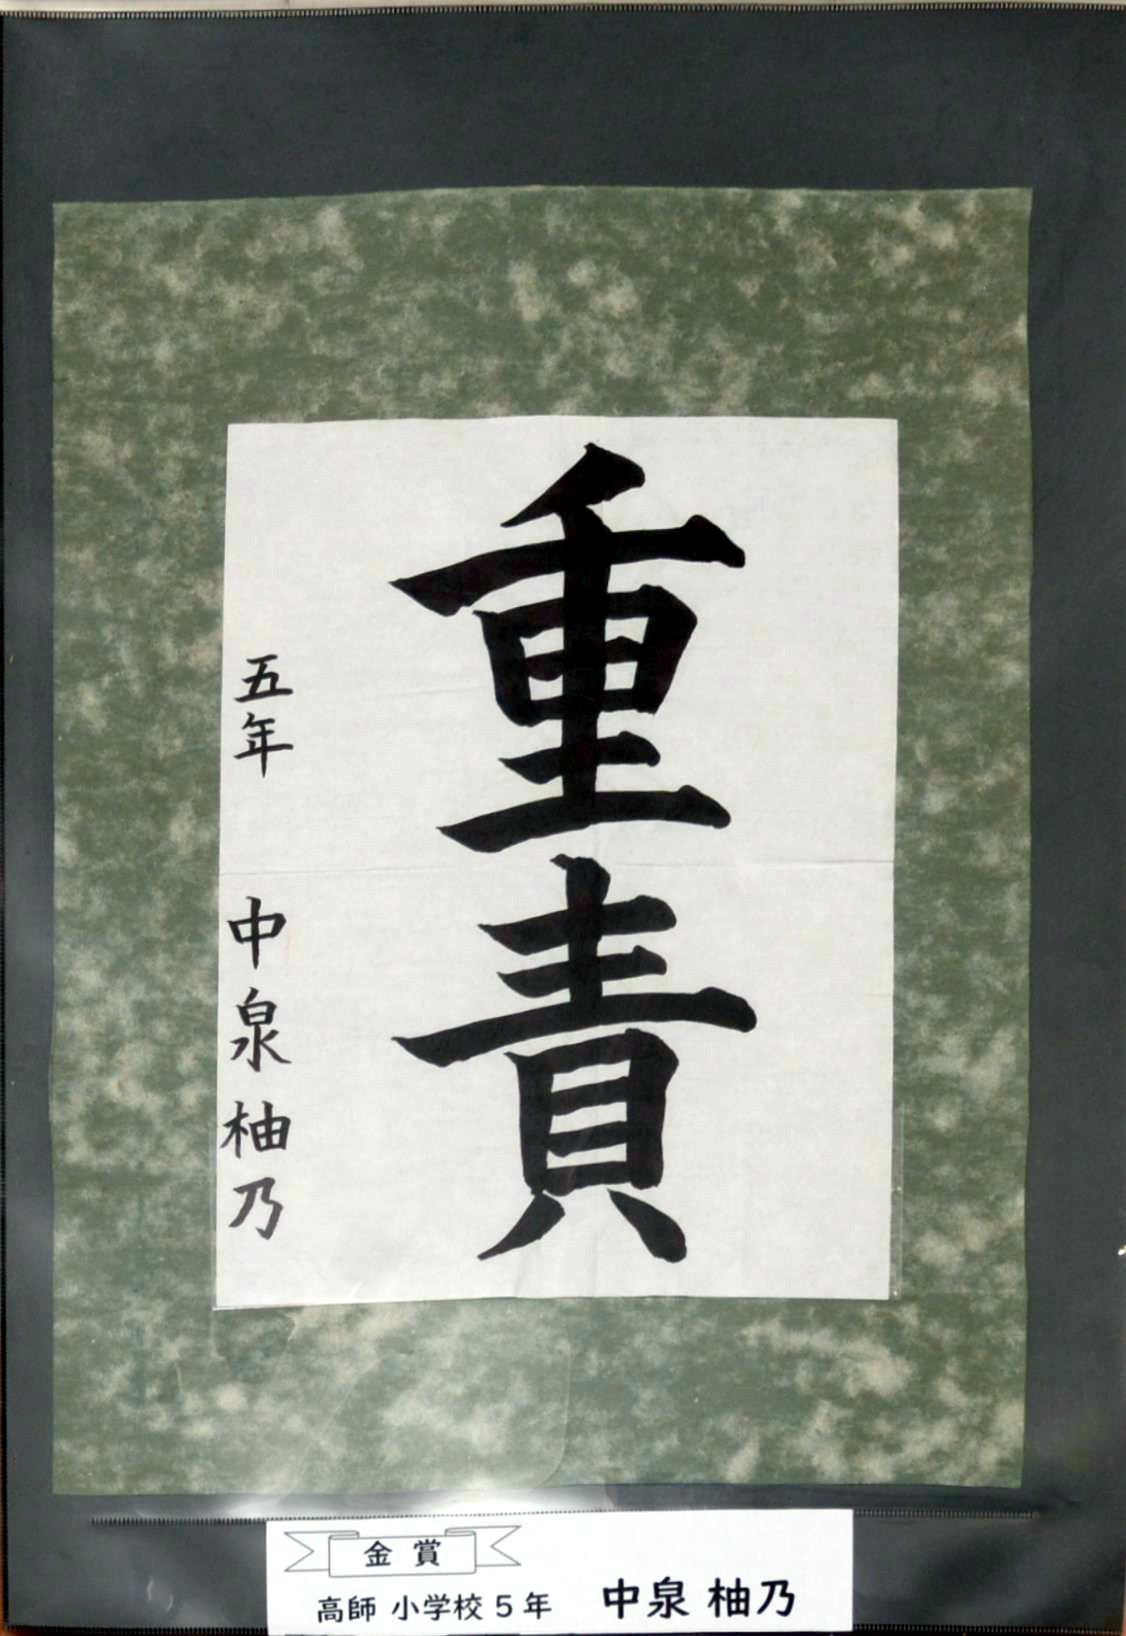 重責
五年 中泉柚乃
金賞
高師 小学校 5年 中泉 柚乃